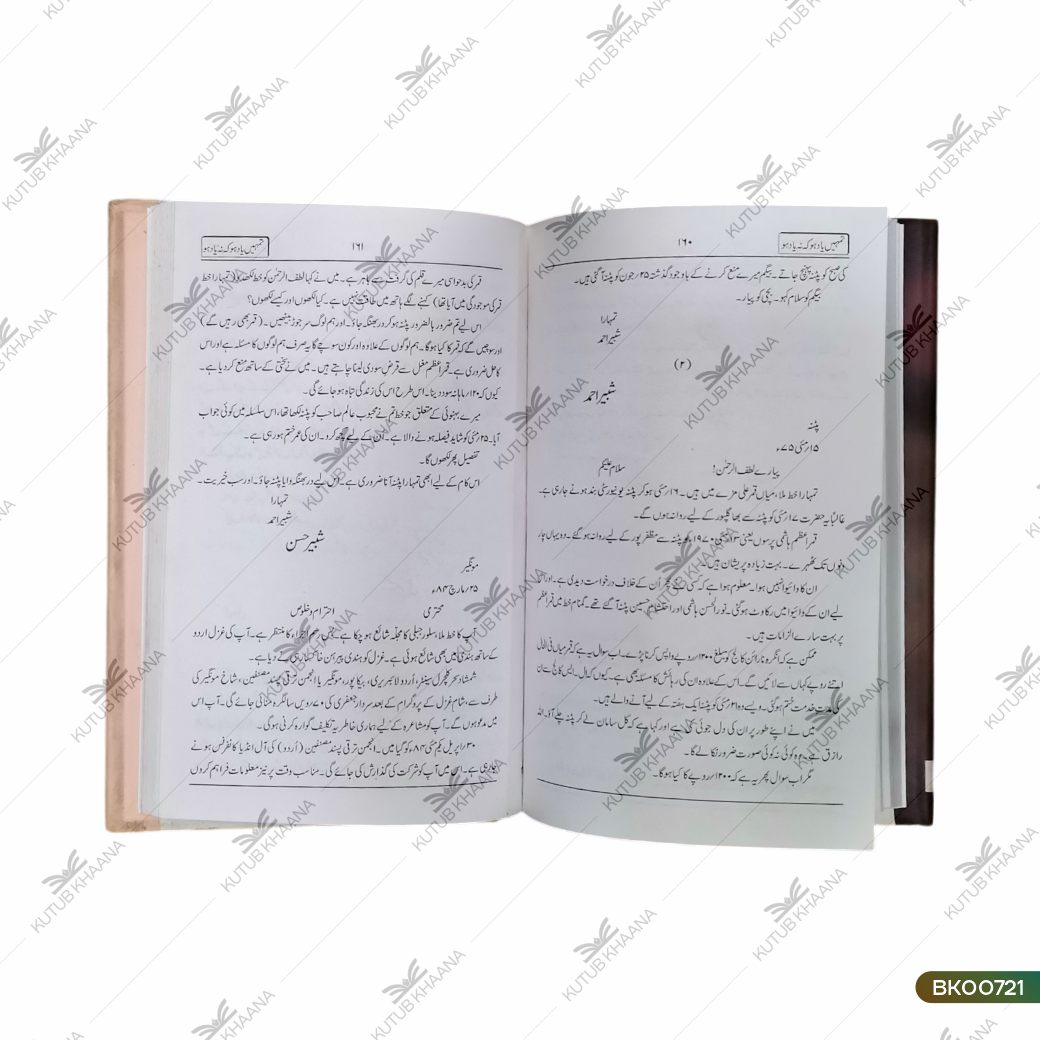 تمہیں یاد ہو کہ نہ یاد ہو
۱۶۰
کی صبح کو پٹنہ پہنچ جاتے۔ بیگم میرے منع کرنے کے باوجود گذشتہ ۲۵ رجون کو پٹنہ آ گئی ہیں۔
بیگم کو سلام کہو۔ بچی کو پیار۔
تمہارا
شبیر احمد
(۲)
شبیر احمد
پٹنہ
۱۵ رمئی ۷۵ء
پیارے لطف الرحمٰن! سلام علیکم
تمہارا خط ملا، میاں قمر علی مزے میں ہیں۔ ۱۶ رمئی ہو کر پٹنہ یونیورسٹی بند ہونے جاری ہے۔
غالباً یہ حضرت ۱۷ رمئی کو پٹنہ سے بھاگلپور کے لیے روانہ ہوں گے۔
قمر اعظم ہاشمی پرسوں یعنی ۱۳ کو پٹنہ سے مظفر پور کے لیے روانہ ہو گئے۔ وہ یہاں چار
دنوں تک ٹھہرے۔ بہت زیادہ پریشان ہیں۔
ان کا وائیوا نہیں ہوا۔ معلوم ہوا ہے کہ کسی نے پھر اُن کے خلاف درخواست دیدی ہے۔ اور اس
لیے ان کے وائیوا میں رکاوٹ ہو گئی۔ نورالحسن ہاشمی اور احتشام حسین پٹنہ آ گئے تھے۔ گمنام خط میں قمر اعظم
پر بہت سارے الزامات ہیں۔
ممکن ہے کہ انگرہ نارائن کالج کو مبلغ ۱۲۰۰ روپے واپس کرنا پڑے۔ اب سوال یہ ہے کہ قمر میاں فی الحال
اتنے روپے کہاں سے لائیں گے۔ اس کے علاوہ ان کی رہائش کا مسئلہ بھی ہے۔ کیوں کہ ال۔ ایس کالج سے ان
کی مدت خدمت ختم ہو گئی۔ ویسے وہ ۲۱ مئی کو پٹنہ ایک ہفتہ کے لیے آنے والے ہیں۔
میں نے اپنے طور پر ان کی دل جوئی کی ہے اور کہا ہے کہ کل سامان لے کر پٹنہ چلے آؤ۔ اللہ
رازق ہے۔ وہ کوئی نہ کوئی صورت ضرور نکالے گا۔
مگر اب سوال پھر یہ ہے کہ ۱۲۰۰ روپے کا کیا ہوگا۔
تمہیں یاد ہو کہ نہ یاد ہو
۱۶۱
قمر کی بدحواسی میرے قلم کی گرفت سے باہر ہے۔ میں نے کہا لطف الرحمٰن کو خط لکھ دو (تمہارا خط
قمر کی موجودگی میں آیا تھا) کہنے لگے ہاتھ میں طاقت نہیں ہے۔ کیا لکھوں اور کیسے لکھوں؟
اس لیے تم ضرور بالضرور پٹنہ ہو کر در بھنگہ جاؤ۔ اور ہم لوگ سر جوڑ بیٹھیں۔ (قمر بھی رہیں گے)
اور سوچیں گے کہ قمر کا کیا ہوگا۔ ہم لوگوں کے علاوہ اور کون سوچے گا یہ صرف ہم لوگوں کا مسئلہ ہے اور اس
کا حل ضروری ہے۔ قمر اعظم مغل سے قرض سودی لینا چاہتے ہیں۔ میں نے سختی کے ساتھ منع کر دیا ہے۔
کیوں کہ ۱۲۰ ماہانہ سود دینا۔ اس طرح اس کی زندگی تباہ ہو جائے گی۔
میرے بہنوئی کے متعلق جو خط تم نے محبوب عالم صاحب کو پٹنہ لکھا تھا، اس سلسلہ میں کوئی جواب
آیا۔ ۲۵ رمئی کو شاید فیصلہ ہونے والا ہے۔ ان کے لیے کچھ کرو۔ ان کی عمر ختم ہو رہی ہے۔
تفصیل پھر لکھوں گا۔
اس کام کے لیے بھی تمہارا پٹنہ آنا ضروری ہے۔ اس لیے در بھنگہ وایا پٹنہ جاؤ۔ اور سب خیریت۔
تمہارا
شبیر احمد
شبیر حسن
مونگیر
۲۵ رمارچ ۸۴ء
محترمی احترام و خلوص
آپ کا خط ملا، سلور جبلی کا مجلّہ شائع ہو چکا ہے۔ لیکن رسم اجراء کا منتظر ہے۔ آپ کی غزل اردو
کے ساتھ ہندی میں بھی شائع ہوئی ہے۔ غزل کو ہندی پیرہن خاکسار ہی نے دیا ہے۔
شمشاد سحر کلچرل سینٹر، اُردو لائبریری، بیکاپور، مونگیر یا انجمن ترقی پسند مصنفین، شاخ مونگیر کی
طرف سے، شام غزل کے پروگرام کے بعد سردار جعفری کی ۷۰ ویں سالگرہ منائی جائے گی۔ آپ اس
میں مدعو ہوں گے۔ آپ کو مشاعرہ کے لیے ہماری خاطر یہ تکلیف گوارہ کرنی ہوگی۔
۳۰ راپریل یکم مئی ۸۴ء کو گیا میں۔ انجمن ترقی پسند مصنفین (اُردو) کی آل انڈیا کانفرنس ہونے
جا رہی ہے۔ اس میں آپ کو شرکت کی گذارش کی جائے گی۔ مناسب وقت پر نیز معلومات فراہم کروں
KUTUB KHAANA
BK00721